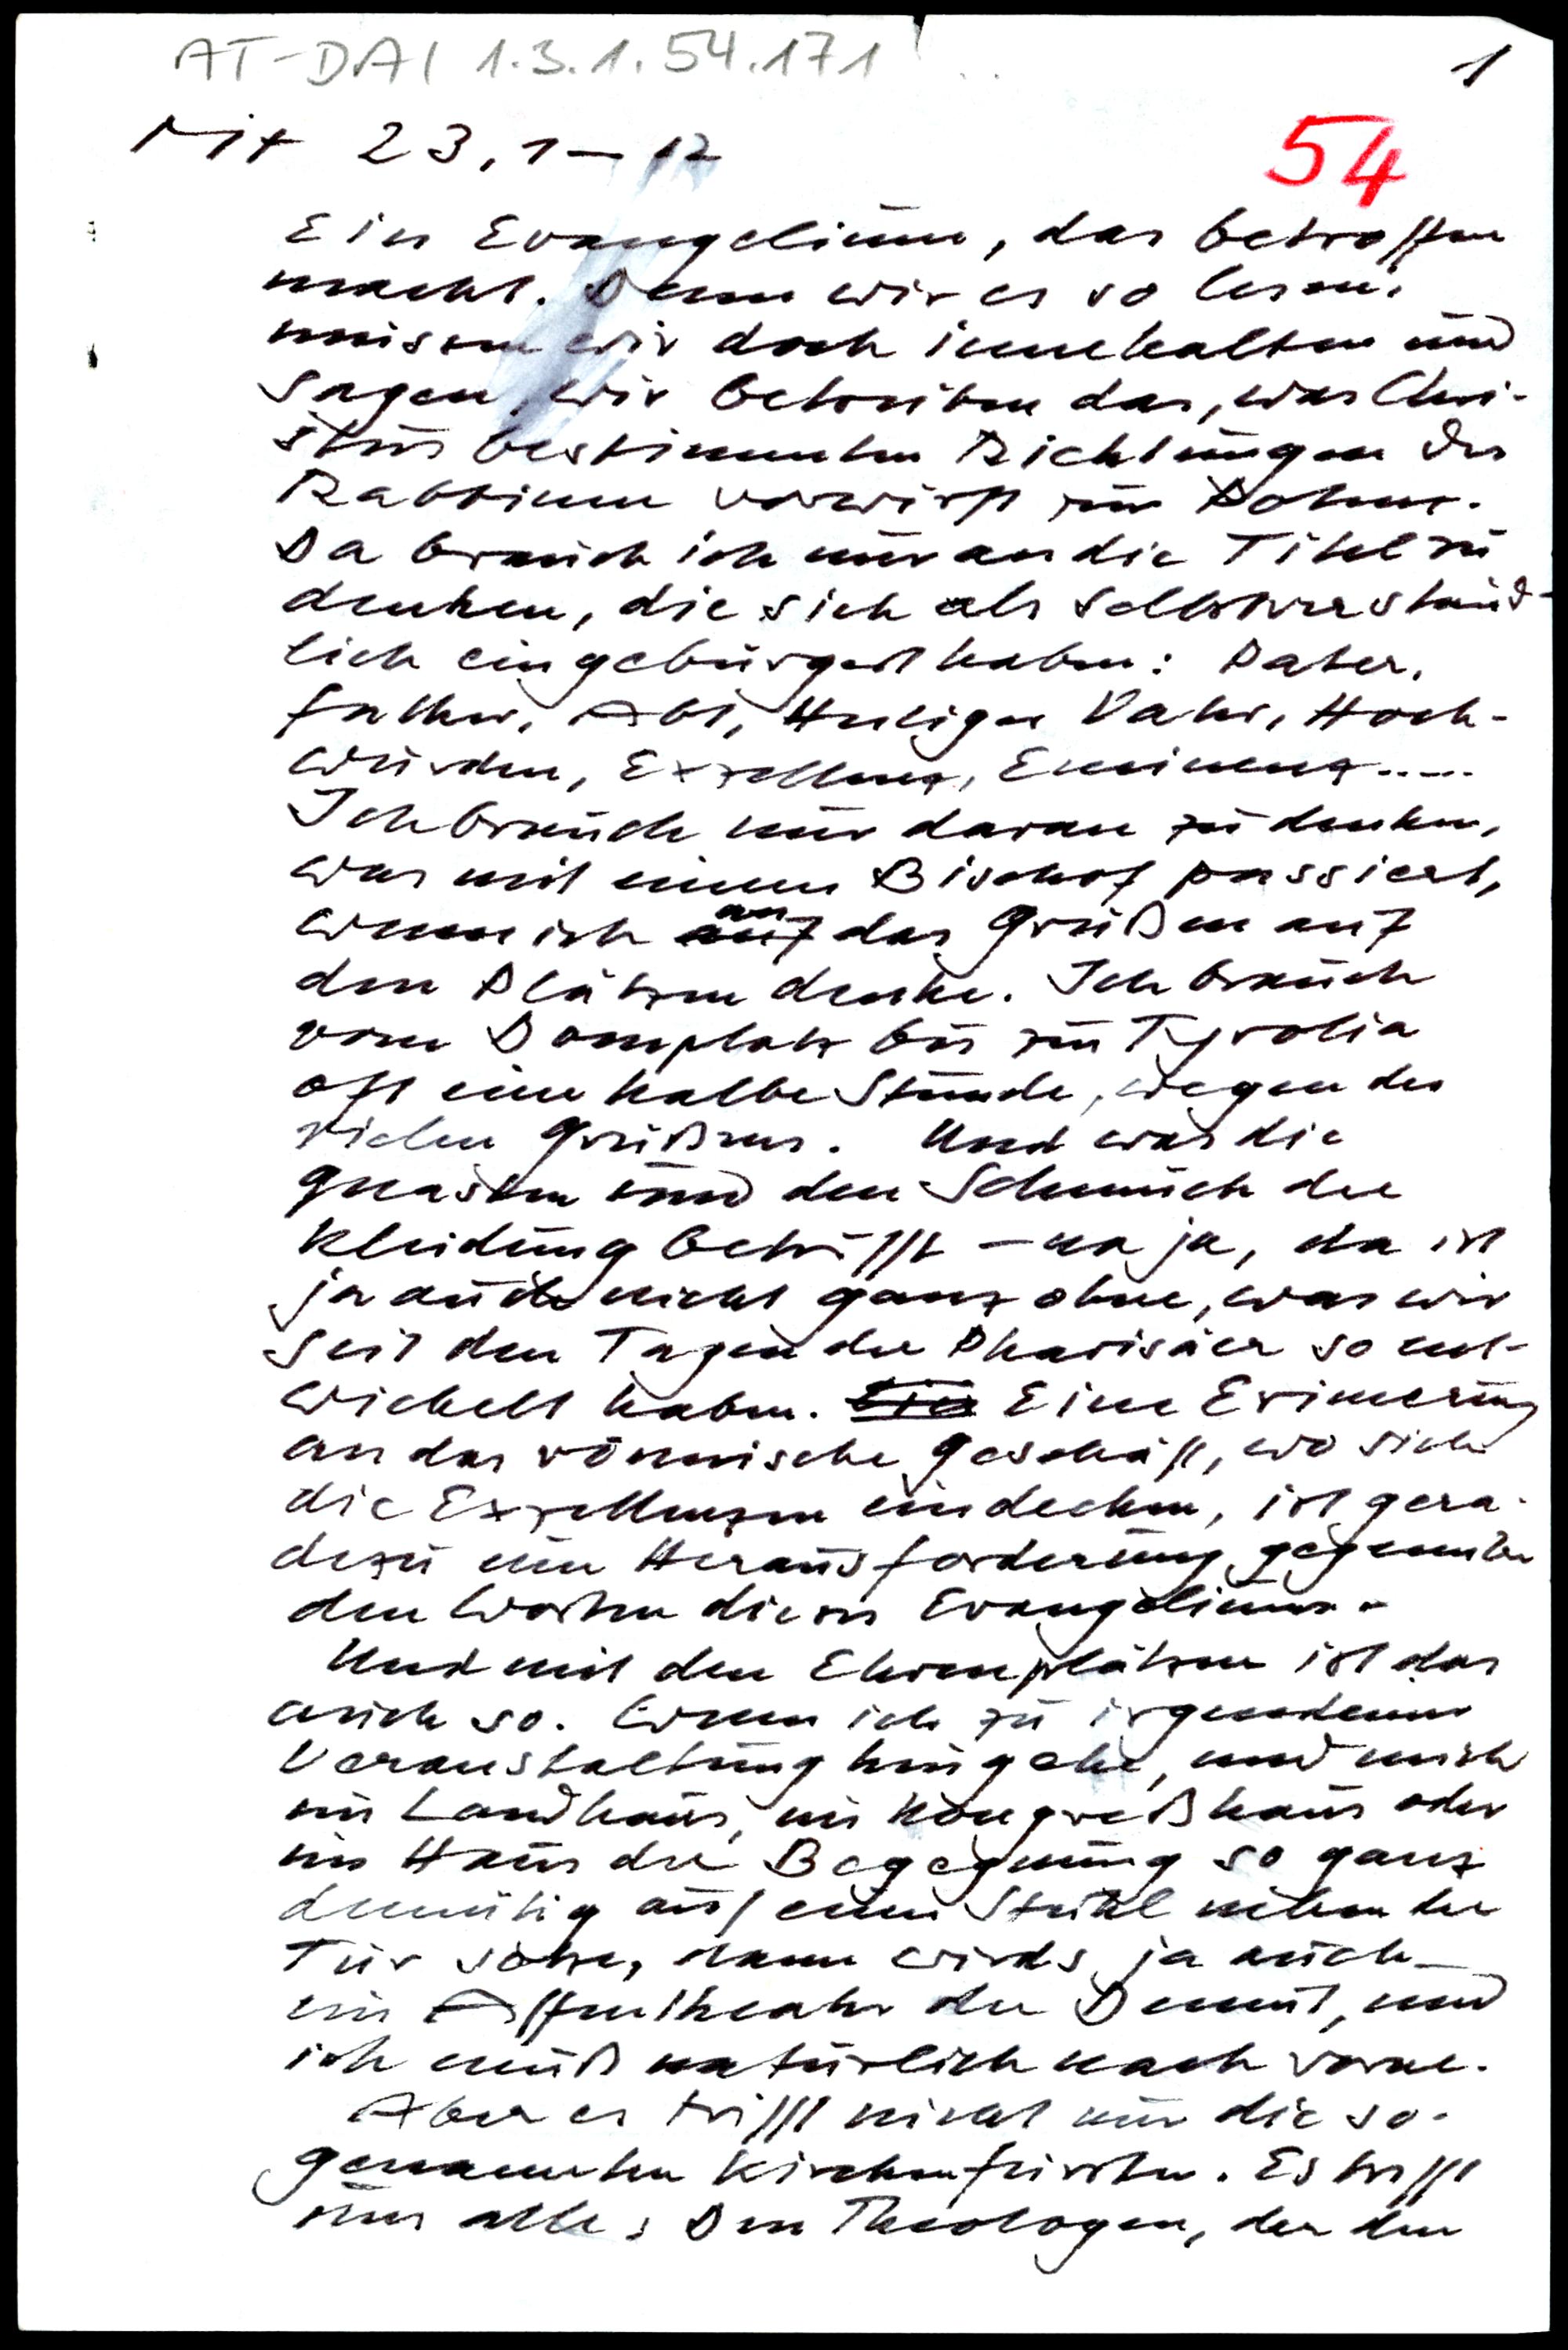 AT-DAI 1.3.1.54.171
1
Mt 23,1-12
54
Ein Evangelium, das betroffen
macht. Denn wir es so lesen,
müssen wir doch innehalten und
sagen, wir betreiben das, was Chri-
stus bestimmten Richtungen der
Rabbinen vorwirft zur Potenz.
Da brauch ich nur an die Titel zu
denken, die sich als selbstverständ-
lich eingebürgert haben: Pater,
father, Abt, Heiliger Vater, Hoch-
würden, Exzellenz, Eminenz.....
Ich brauch nur daran zu denken,
was mit einem Bischof passiert,
wenn ich an das Grüßen auf
den Plätzen denke. Ich brauch
vom Domplatz bis zur Tyrolia
oft eine halbe Stunde, wegen des
vielen Grüßens. Und was die
Quasten und den Schmuck der
Kleidung betrifft - na ja, da ist
ja auch nicht ganz ohne, was wir
seit den Tagen der Pharisäer so ent-
wickelt haben. Eine Erinnerung
an das römische Geschäft, wo sich
die Exzellenzen eindecken, ist gera-
dezu eine Herausforderung gegenüber
den Worten dieses Evangeliums.
Und mit den Ehrenplätzen ist das
auch so. Wenn ich zu irgendeiner
Veranstaltung hingehe, und mich
im Landhaus, im Kongreßhaus oder
im Haus der Begegnung so ganz
demütig auf einen Stuhl neben der
Tür setze, dann wirds ja auch
ein Affentheater der Demut, und
ich muß natürlich nach vorne.
Aber es trifft nicht nur die so-
genannten Kirchenfürsten. Es trifft
uns alle: Den Theologen, der den